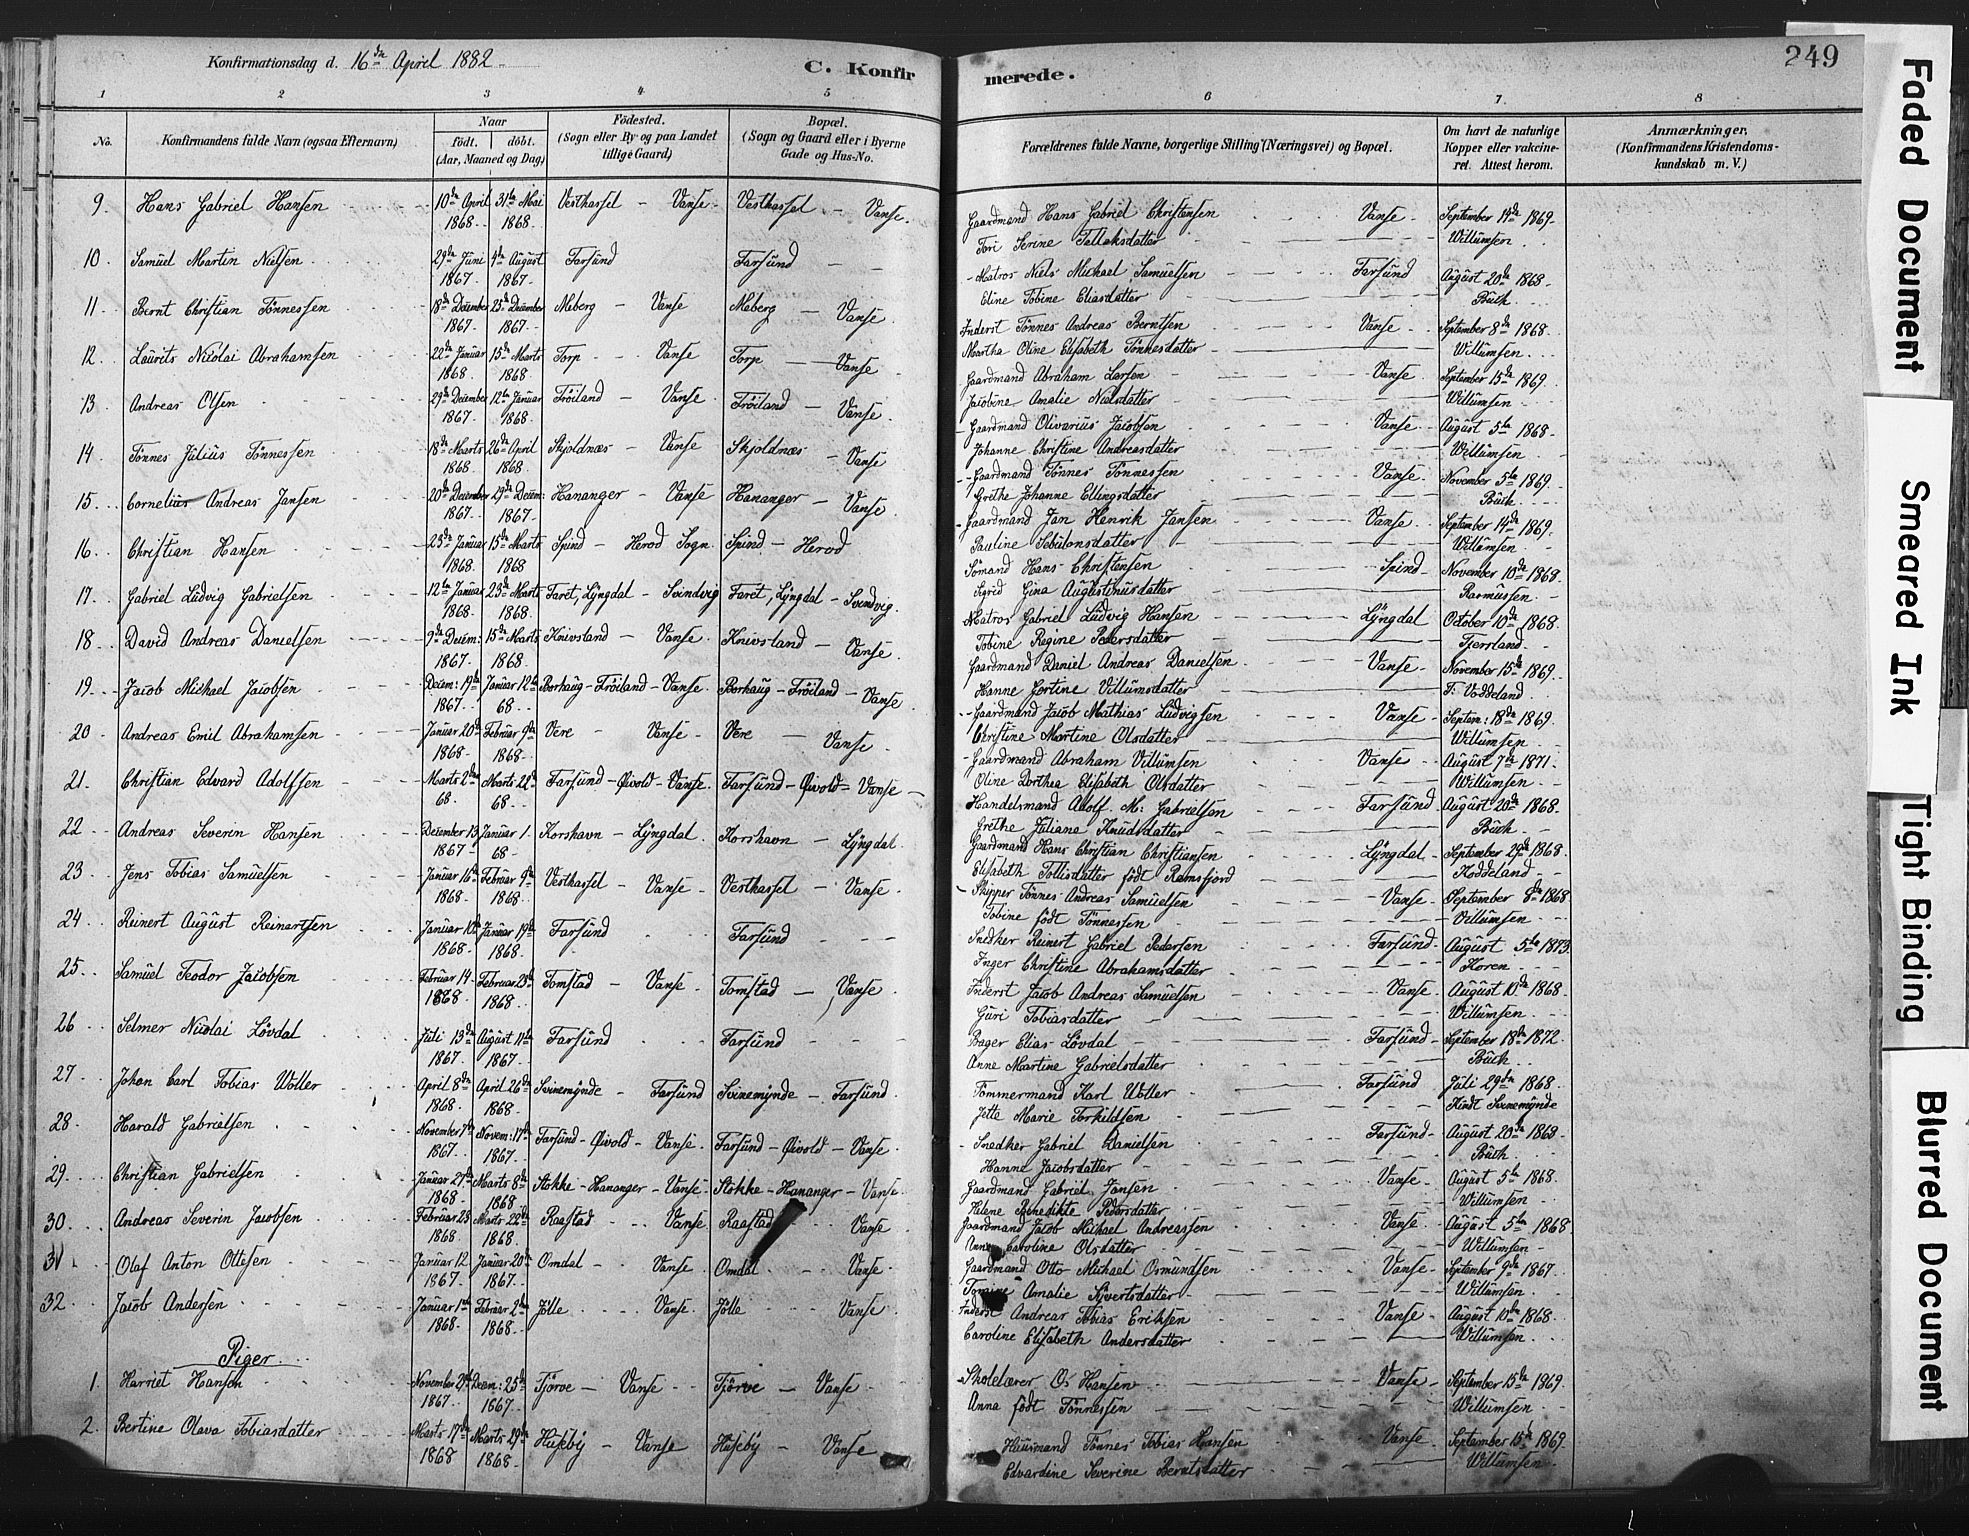 249
Konfirmationsdag d. 16de April 1882
C. Konfirmerede.
1 2 3 4 5 6 7. 8
No. Konfirmandens fulde Navn (ogsaa Efternavn) Naar födt. döbt. (Aar, Maaned og Dag) Födested. (Sogn eller By og paa Landet tillige Gaard) Bopæl. (Sogn og Gaard eller i Byerne Gade og Hus-No.
Forældrenes fulde Navne, borgerlige Stilling (Næringsvei) og Bopæl. Om havt de naturlige Kopper eller vakcineret. Attest herom. Anmærkninger. (Konfirmandens Kristendomskundskab m. V.)
9. Hans Gabriel Hansen 10de April 1868 31te Mai 1868 Vesthassel - Vanse Vesthassel - Vanse
Gaardmand Hans Gabriel Christensen Vanse September 14de 1869
Tori Serine Tellaksdatter Willumsen
10 Samuel Martin Nielsen 29de Juni 1867 4de August 1867 Farsund Farsund
Matros Niels Michael Samuelsen Farsund August 20de 1868
Eline Tobine Eliasdatter Buch
11 Bernt Christian Tönnessen 18de December 1867 25de December 1867 Meberg - Vanse Meberg - Vanse
Inderst Tönnes Andreas Berntsen Vanse September 8de 1868
Martha Oline Elisabeth Tönnesdatter Willumsen
12. Laurits Nicolai Abrahamsen 22de Januar 1868 15de Marts 1868 Torp - Vanse Torp - Vanse
Gaardmand Abraham Larsen Vanse September 15de 1869
Jacobine Amalie Nielsdatter Willumsen
13 Andreas Olsen 29de December 1867 12te Januar 1868 Fröiland - Vanse Fröiland - Vanse
Gaardmand Olivarius Jacobsen Vanse August 5te 1868
Johanne Christine Andreasdatter Willumsen
14 Tönnes Julius Tönnessen 18de Marts 1868 26de April 1868 Skjoldnæs - Vanse Skjoldnæs - Vanse
Gaardmand Tönnes Tönnessen Vanse November 5te 1869
Grethe Johanne Ellingsdatter Buch
15 Cornelius Andreas Jansen 20de December 1867 29de Decem: 1867 Hananger - Vanse Hananger - Vanse
Gaardmand Jan Henrik Jansen Vanse September 14de 1869
Pauline Sebulonsdatter Willumsen
16 Christian Hansen 23de Januar 1868 15de Marts 1868 Spind - Herod Sogn Spind - Herod
Sömand Hans Christensen Spind November 10de 1868
Sigrid Gina Augustinusdatter Rasmussen
17. Gabriel Ludvig Gabrielsen 12te Januar 1868 23de Marts 1868 Faret, Lyngdal - Svindvig Faret, Lyngdal - Svindvig
Matros Gabriel Ludvig Hansen Lyngdal October 10de 1868
Tobine Regine Pedersdatter Fjerrland
18 David Andreas Danielsen 9de Decem: 1867 15de Marts 1868 Knivsland - Vanse Knivsland - Vanse
Gaardmand Daniel Andreas Danielsen Vanse November 15de 1869
Hanne Gortine Villumsdatter T: Voddeland
19 Jacob Michael Jacobsen Decem: 19de 1867 Januar 12te 68 Borhaug - Fröiland - Vanse Borhaug - Fröiland - Vanse
Gaardmand Jacob Mathias Ludvigsen Vanse Septem: 18de 1869
Christine Martine Olsdatter Willumsen
20 Andreas Emil Abrahamsen Januar 20de 1868 Februar 9de 1868 Vere - Vanse Vere - Vanse
Gaardmand Abraham Villumsen Vanse August 7de 1871
Oline Dorthea Elisabeth Olsdatter Willumsen
21. Christian Edvard Adolfsen Marts 2den 68 Marts 22de 68 Farsund - Öivold - Vanse Farsund - Öivold - Vanse
Handelsmand Adolf M: Gabrielsen Farsund August 20de 1868
Grethe Juliane Knudsdatter Buch
22 Andreas Severin Hansen December 13 1867 Januar 1 68 Korshavn - Lyngdal Korshavn - Lyngdal
Gaardmand Hans Christian Christiansen Lyngdal September 29de 1868
Elisabeth Tollisdatter födt Ramsfjord Koddeland
23 Jens Tobias Samuelsen Januar 16de 1868 Februar 9de 1868 Vesthassel - Vanse Vesthassel - Vanse
Skipper Tönnes Andreas Samuelsen Vanse September 8de 1868
Tobine födt Tönnessen Villumsen
24 Reinert August Reinertsen Januar 10de 1868 Januar 19de 1868 Farsund Farsund
Snedker Reinert Gabriel Pedersen Farsund August 5te 1873
Inger Christine Abrahamsdatter Koren
25 Samuel Teodor Jacobsen Februar 14 1868 Februar 23de 1868 Tomstad - Vanse Tomstad - Vanse
Inderst Jacob Andreas Samuelsen Vanse August 10de 1868
Guri Tobiasdatter Willumsen
26 Selmer Nicolai Lövdal Juli 13de 1867 August 11te 1867 Farsund Farsund
Bager Elias Lövdal Farsund September 18de 1872
Anne Martine Gabrielsdatter Buch
27 Johan Carl Tobias Woller April 8de 1868 April 26de 1868 Svinemynde - Farsund Svinemynde - Farsund
Tömmermand Karl Woller Farsund Juli 29de 1868
Jette Marie Torkildsen Kindt Svinemynde
28 Harald Gabrielsen November 7de 1867 Novem: 17de 1867 Farsund - Öivold - Vanse Farsund - Öivold - Vanse
Snedker Gabriel Danielsen Farsund August 20de 1868
Hanne Jacobsdatter Buch
29. Christian Gabrielsen Januar 27de 1868 Marts 8de 1868 Stokke - Hananger - Vanse Stokke - Hananger - Vanse
Gaardmand Gabriel Jansen Vanse August 5te 1868
Helene Benedikte Pedersdatter Willumsen
30. Andreas Severin Jacobsen Februar 28 1868 Marts 22de 1868 Raastad Vanse Raastad Vanse
Gaardmand Jacob Michael Andreassen Vanse August 5te 1868
Anne Caroline Olsdatter Willumsen
31 Olaf Anton Ottesen Januar 12 1867 Januar 20de 1867 Omdal - Vanse Omdal Vanse
Gaardmand Otto Michael Osmundsen Vanse September 9de 1867
Tomine Amalie Sjvertsdatter Willumsen
32. Jacob Andersen Januar 1ste 1868 Februar 2den 1868 Jölle Vanse Jölle Vanse
Inderst Andreas Tobias Eriksen Vanse August 10de 1868
Caroline Elisabeth Andersdatter Willumsen
Piger
1. Harriet Hansen November 29de 1867 Decem: 25de 1867 Tjörve - Vanse Tjörve - Vanse
Skolelærer O. Hansen Vanse September 15de 1869
Anna födt Tönnessen Willumsen
2. Bertine Olava Tobiasdatter Marts 17de 1868 Marts 29de 1868 Huseby - Vanse Huseby - Vanse
Huusmand Tönnes Tobias Hansen Vanse September 15de 1869
Edvardine Severine Berntsdatter Willumsen
Faded Document
Smeared Ink
Tight Binding
Blurred Document